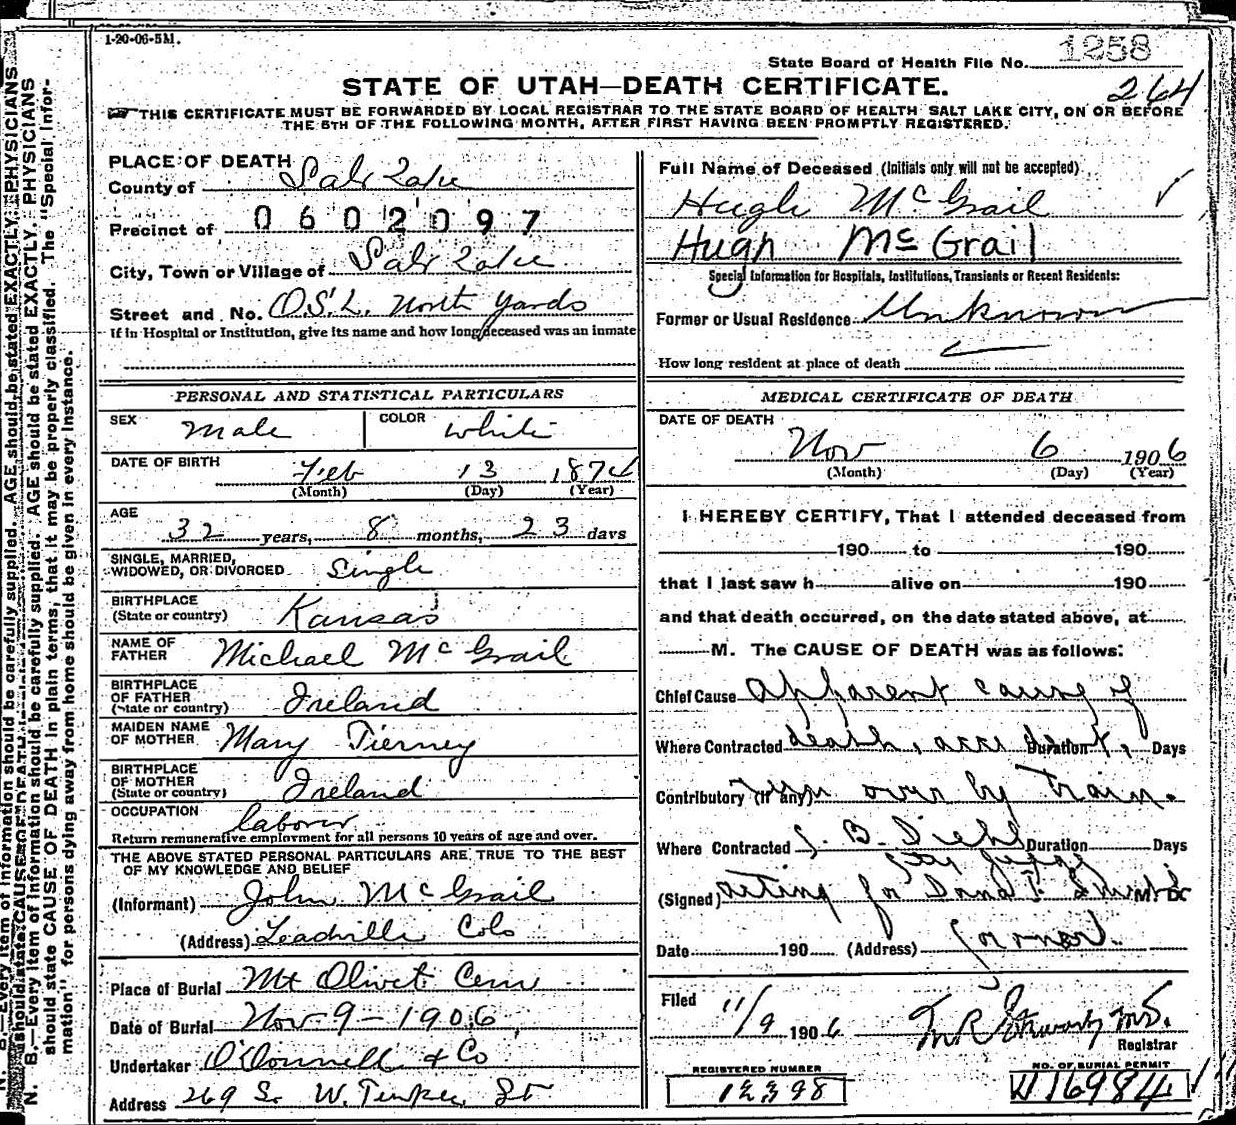 1-20-06-5M.
State Board of Health File No. 1258
264
STATE OF UTAH—DEATH CERTIFICATE.
THIS CERTIFICATE MUST BE FORWARDED BY LOCAL REGISTRAR TO THE STATE BOARD OF HEALTH SALT LAKE CITY, ON OR BEFORE
THE 5TH OF THE FOLLOWING MONTH, AFTER FIRST HAVING BEEN PROMPTLY REGISTERED.
PLACE OF DEATH
County of Salt Lake
Precinct of 0602097
City, Town or Village of Salt Lake
Street and No. O.S.L. North Yards
If in Hospital or Institution, give its name and how long deceased was an inmate
PERSONAL AND STATISTICAL PARTICULARS
SEX Male COLOR White
DATE OF BIRTH Feb 13 1874
(Month) (Day) (Year)
AGE
32 years, 8 months, 23 days
SINGLE, MARRIED,
WIDOWED, OR DIVORCED Single
BIRTHPLACE
(State or country) Kansas
NAME OF
FATHER Michael McGrail
BIRTHPLACE
OF FATHER
(State or country) Ireland
MAIDEN NAME
OF MOTHER Mary Tierney
BIRTHPLACE
OF MOTHER
(State or country) Ireland
OCCUPATION laborer
Return remunerative employment for all persons 10 years of age and over.
THE ABOVE STATED PERSONAL PARTICULARS ARE TRUE TO THE BEST
OF MY KNOWLEDGE AND BELIEF
(Informant) John McGrail
(Address) Leadville Colo
Place of Burial Mt Olivet Cem
Date of Burial Nov 9-1906
Undertaker O'Donnell & Co
Address 269 So. W. Temple St
Full Name of Deceased (Initials only will not be accepted)
Hugh McGrail
Hugh McGrail
Special Information for Hospitals, Institutions, Transients or Recent Residents:
Former or Usual Residence Unknown
How long resident at place of death
MEDICAL CERTIFICATE OF DEATH
DATE OF DEATH
Nov 6 1906
(Month) (Day) (Year)
I HEREBY CERTIFY, That I attended deceased from
190 to 190
that I last saw h alive on 190
and that death occurred, on the date stated above, at
M. The CAUSE OF DEATH was as follows:
Chief Cause Apparent cause of
Where Contracted death, accident, Duration Days
Contributory (If any) run over by train.
Where Contracted J. B. Diehl Duration Days
City Judge
(Signed) acting for Dana T. Smith M. D.
Date 190 (Address) Coroner.
Filed 11/9 1906 M.D.
Registrar
REGISTERED NUMBER
12398
NO. OF BURIAL PERMIT
16984
N. B.—Every item of information should be carefully supplied. AGE should be stated EXACTLY. PHYSICIANS
should state CAUSE OF DEATH in plain terms, that it may be properly classified. The "Special Infor-
mation" for persons dying away from home should be given in every instance.